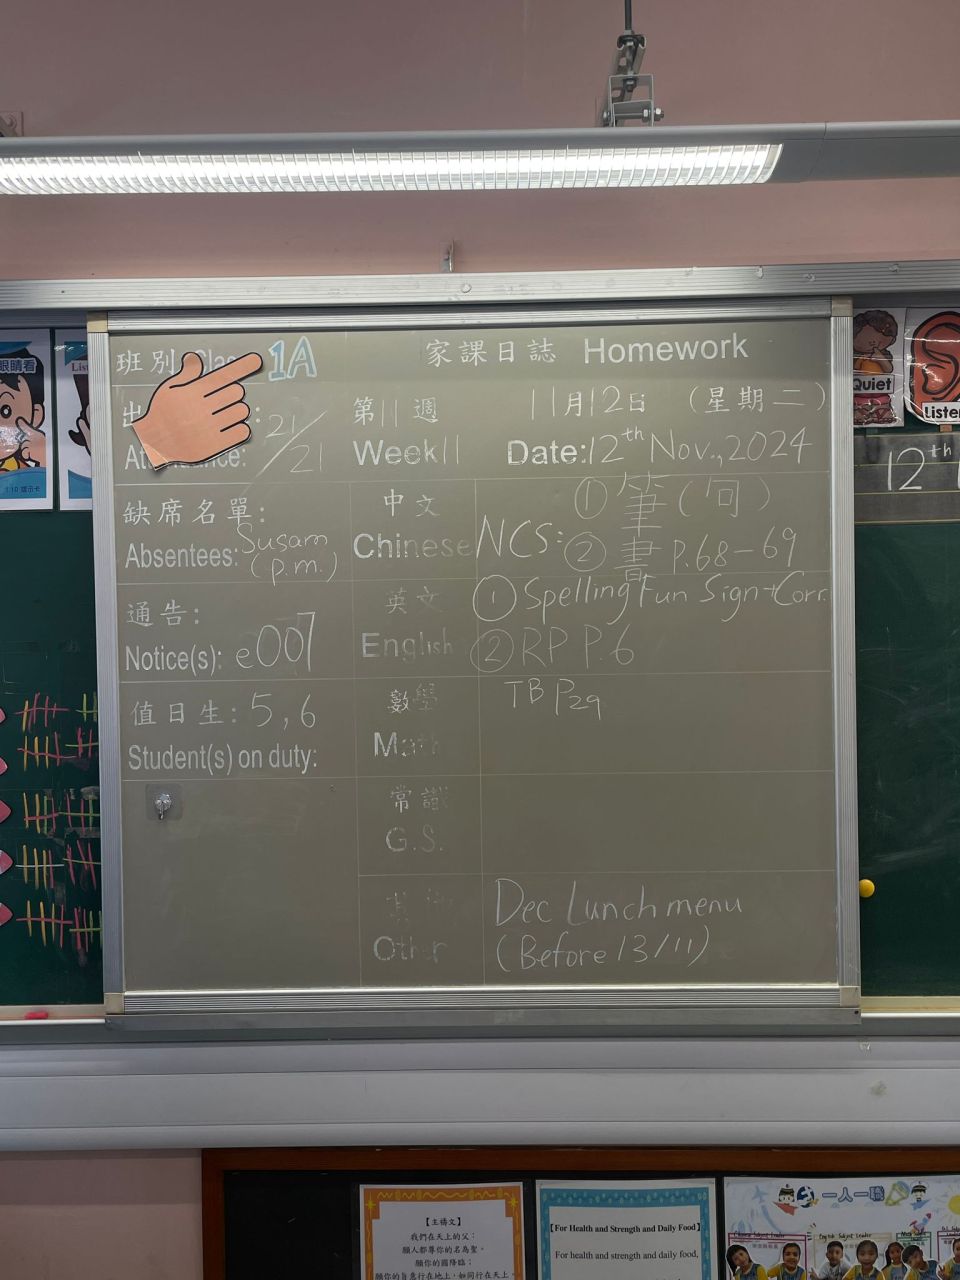 班別 Class 1A
家課日誌 Homework
21/21
第11週
11月12日 (星期二)
Attendance:
Week11
Date:12th Nov.,2024
缺席名單:
Absentees: Susam (p.m.)
中文
Chinese
NCS:
① 筆(句)
② 書 P.68-69
通告:
Notice(s): e007
英文
English
① Spelling Fun Sign+Corr.
② RP P.6
值日生: 5,6
Student(s) on duty:
數學
Math
TB P29
常識
G.S.
其他
Other
Dec Lunch menu
(Before 13/11)
眼睛看
Quiet
Listen
12th
【主禱文】
我們在天上的父:
願人都尊你的名為聖。
願你的國降臨;
願你的旨意行在地上,如同行在天上。
【For Health and Strength and Daily Food】
For health and strength and daily food,
一人一職
English Subject Leader